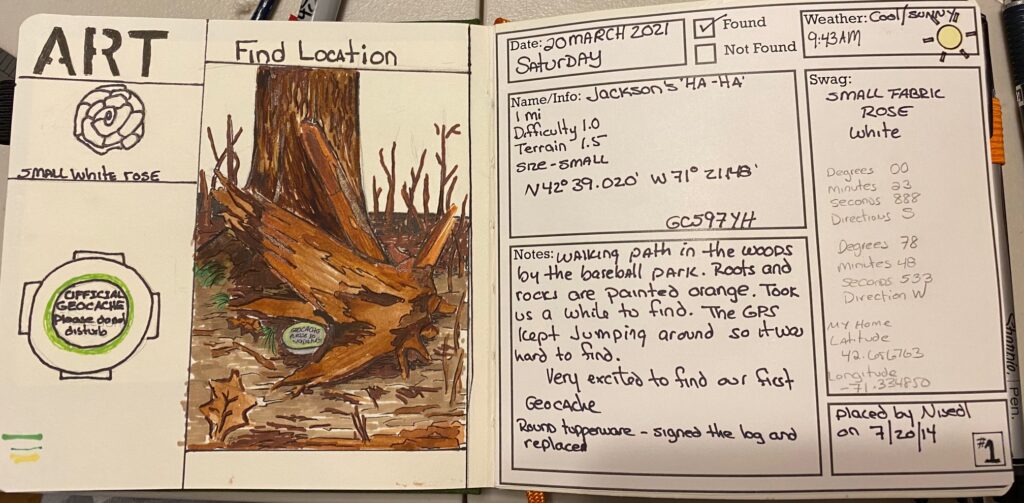 ART
Find Location
SMALL WHITE ROSE
OFFICIAL
GEOCACHE
Please do not
disturb
GEOCACHE
Date: 20 MARCH 2021
SATURDAY
Found
Not Found
Weather: COOL/SUNNY
9:43AM
Name/Info: Jackson's 'HA-HA'
1 mi
Difficulty 1.0
Terrain 1.5
SIZE - SMALL
N42° 39.020' W 71° 21.148'
GC597YH
Swag:
SMALL FABRIC
ROSE
White
Degrees 00
minutes 23
seconds 888
Directions S
Degrees 78
minutes 48
seconds 533
Direction W
MY Home
Latitude
Longitude
-71.334850
Notes: WALKING PATH in the WOODS
by the baseball PARK. Roots and
rocks are painted orange. Took
us a while to find. The GPS
kept Jumping around so it was
hard to find.
Very excited to find our first
GEOCACHE
Round tupperware - signed the log and
replaced
placed by Nisedl
on 7/20/14
#1
Pen.